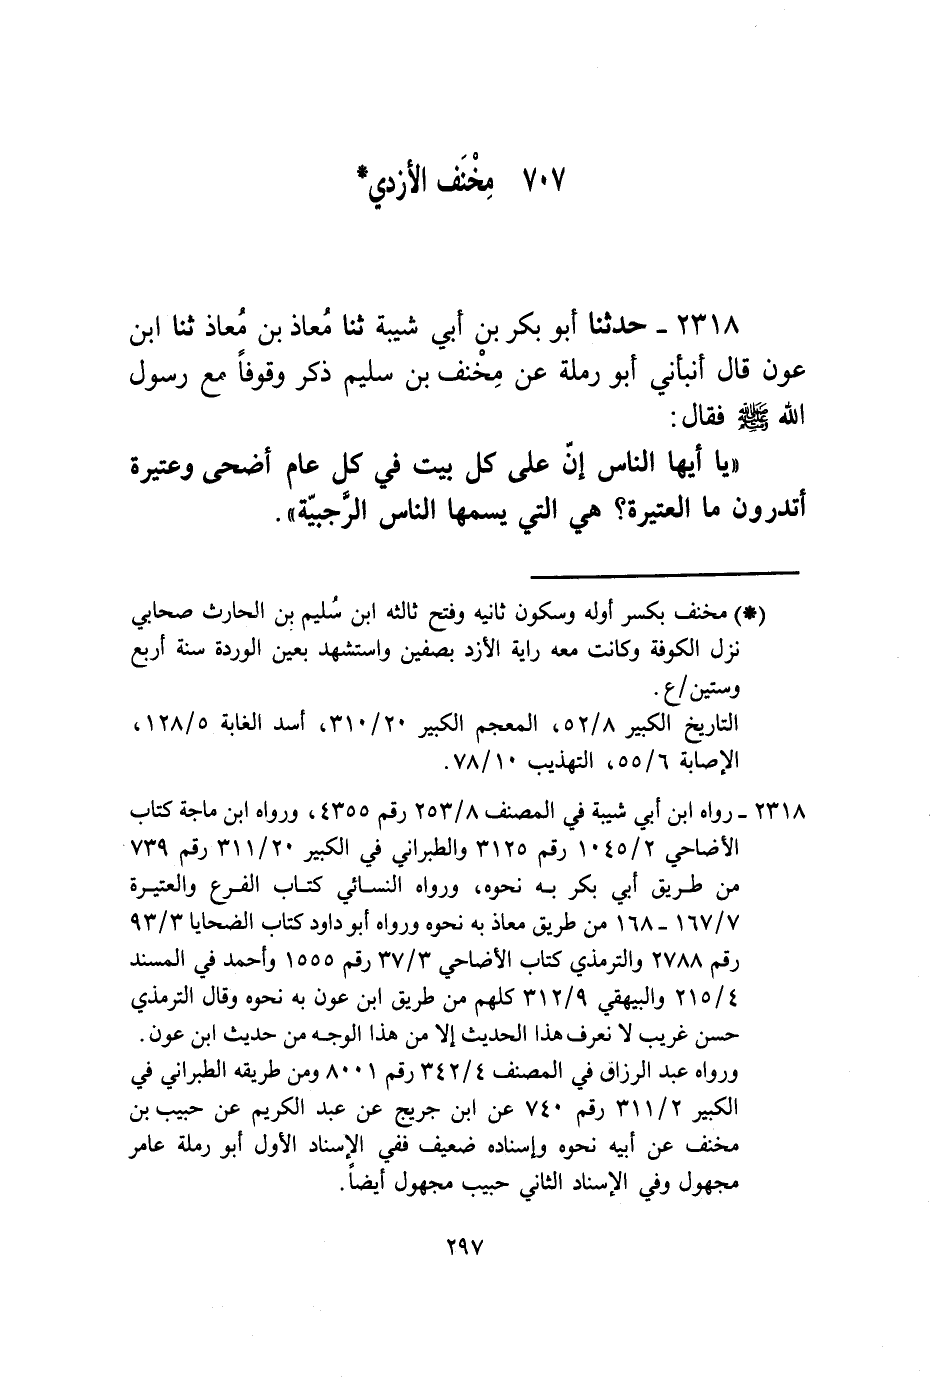 ٧٠٧ مِخْنَف الأزدي*
٢٣١٨ ـ حدثنا أبو بكر بن أبي شيبة ثنا مُعاذ بن مُعاذ ثنا ابن
عون قال أنبأني أبو رملة عن مِخْنف بن سليم ذكر وقوفاً مع رسول
الله ﷺ فقال:
«يا أيها الناس إنّ على كل بيت في كل عام أضحى وعتيرة
أتدرون ما العتيرة؟ هي التي يسمها الناس الرَّجبيّة».
(*) مخنف بكسر أوله وسكون ثانيه وفتح ثالثه ابن سُليم بن الحارث صحابي
نزل الكوفة وكانت معه راية الأزد بصفين واستشهد بعين الوردة سنة أربع
وستين/ع.
التاريخ الكبير ٥٢/٨، المعجم الكبير ٣١٠/٢٠، أسد الغابة ١٢٨/٥،
الإصابة ٥٥/٦، التهذيب ٧٨/١٠.
٢٣١٨ ـ رواه ابن أبي شيبة في المصنف ٢٥٣/٨ رقم ٤٣٥٥، ورواه ابن ماجة كتاب
الأضاحي ١٠٤٥/٢ رقم ٣١٢٥ والطبراني في الكبير ٣١١/٢٠ رقم ٧٣٩
من طريق أبي بكر به نحوه، ورواه النسائي كتاب الفرع والعتيرة
١٦٧/٧ ـ ١٦٨ من طريق معاذ به نحوه ورواه أبو داود كتاب الضحايا ٩٣/٣
رقم ٢٧٨٨ والترمذي كتاب الأضاحي ٣٧/٣ رقم ١٥٥٥ وأحمد في المسند
٢١٥/٤ والبيهقي ٣١٢/٩ كلهم من طريق ابن عون به نحوه وقال الترمذي
حسن غريب لا نعرف هذا الحديث إلا من هذا الوجه من حديث ابن عون.
ورواه عبد الرزاق في المصنف ٣٤٢/٤ رقم ٨٠٠١ ومن طريقه الطبراني في
الكبير ٣١١/٢ رقم ٧٤٠ عن ابن جريج عن عبد الكريم عن حبيب بن
مخنف عن أبيه نحوه وإسناده ضعيف ففي الإسناد الأول أبو رملة عامر
مجهول وفي الإسناد الثاني حبيب مجهول أيضاً.
٢٩٧